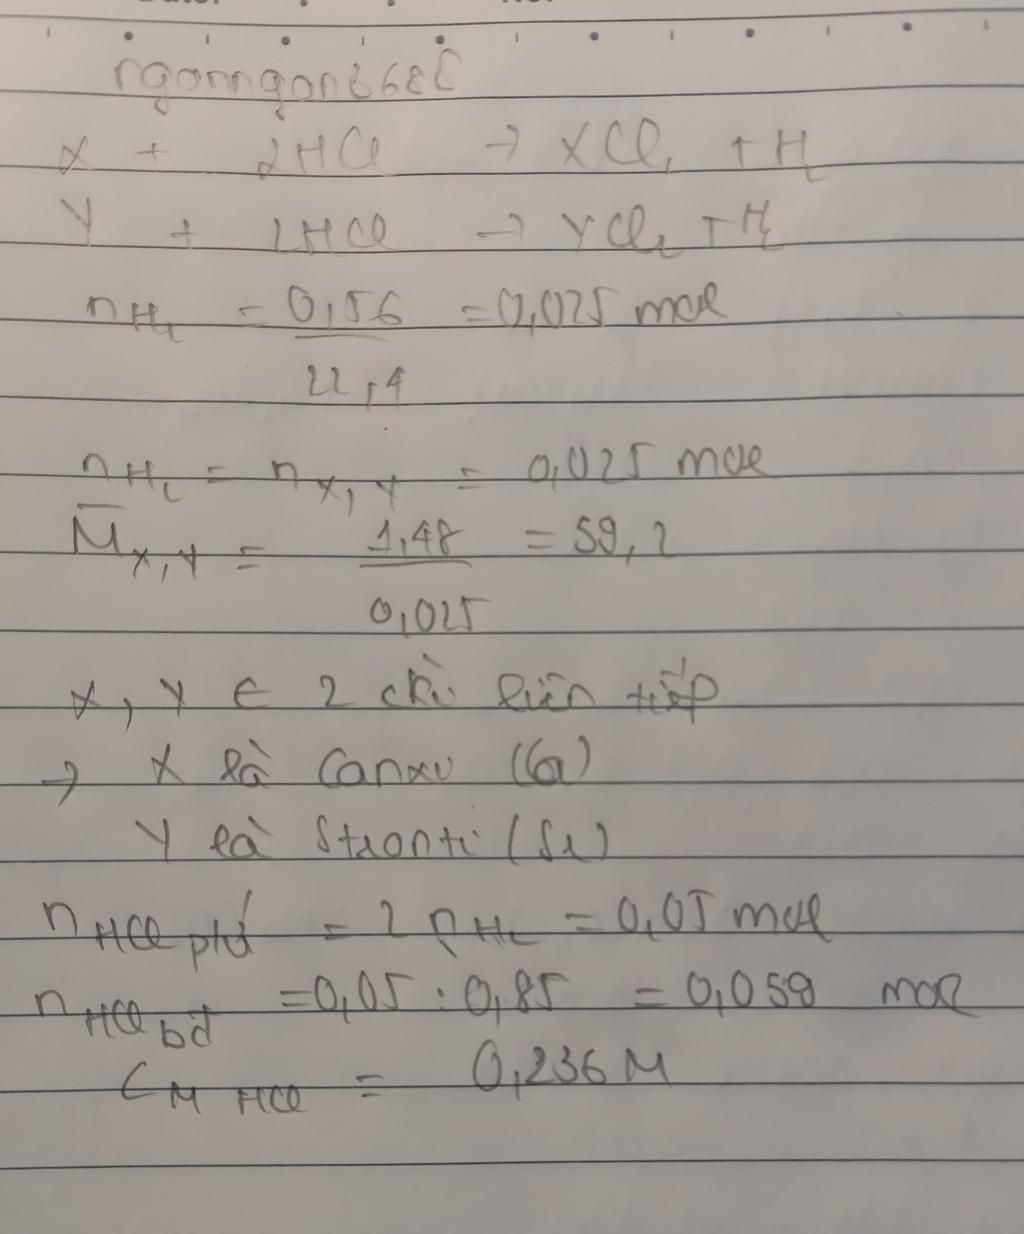 X + 2HCl → XCl₂ + H₂
Y + 2HCl → YCl₂ + H₂
nH₂ = 0,56 / 22,4 = 0,025 mol
nH₂ = nX,Y = 0,025 mol
M̄X,Y = 1,48 / 0,025 = 59,2
X, Y ∈ 2 chì liên tiếp
→ X là Canxi (Ca)
Y là Stronti (Sr)
nHCl pứ = 2nH₂ = 0,05 mol
nHCl bđ = 0,05 : 0,85 = 0,059 mol
CM HCl = 0,236 M